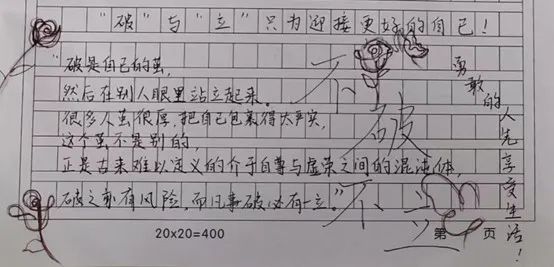 "破"与"立"只为迎接更好的自己！
"破是自己的茧，
然后在别人眼里站立起来。
很多人茧很厚，把自己包裹得太严实，
这个茧不是别的，
正是古来难以定义的介于自尊与虚荣之间的混沌体，
破之前有风险，而凡事破必有一立。"
不破不立
勇敢的人先享受生活！
20×20=400
第 页